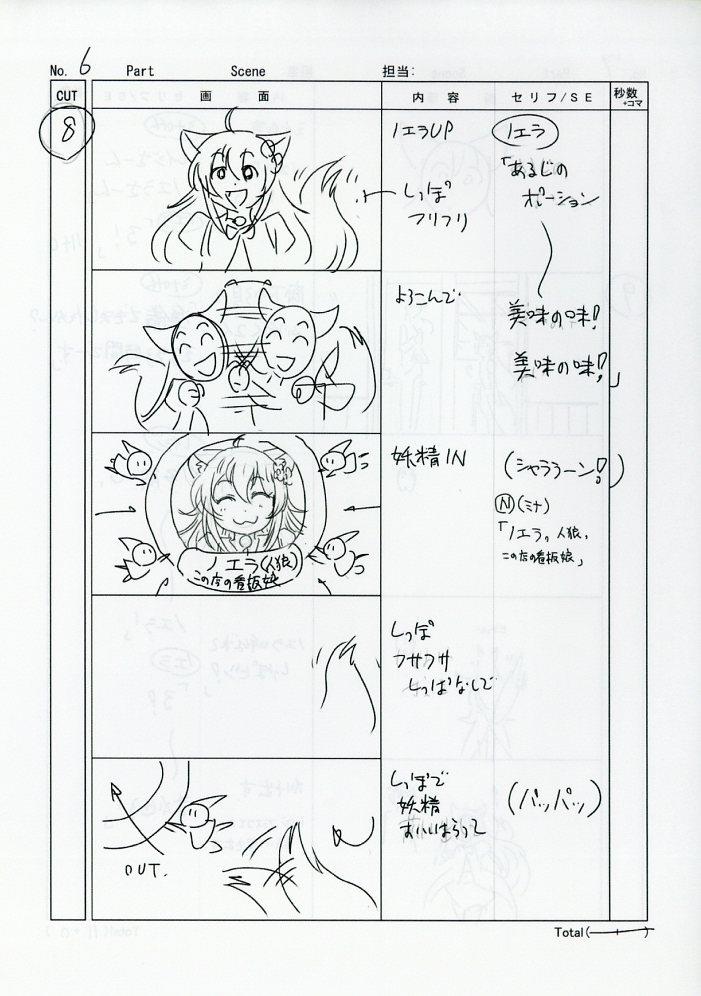 No. 6 Part Scene 担当:
CUT 画 面 内 容 セリフ/SE 秒数
+コマ
8
ノエラUP
しっぽ
フリフリ
ノエラ
「あるじの
ポーション
よろこんで
美味の味!
美味の味!」
妖精IN
(シャララーン!)
N(ミナ)
「ノエラ。人狼。
この店の看板娘」
ノエラ(人狼)
この店の看板娘
しっぽ
フサフサ
しっぱなしで
OUT.
しっぽで
妖精
おいはらって
(パッパッ)
Total( + )